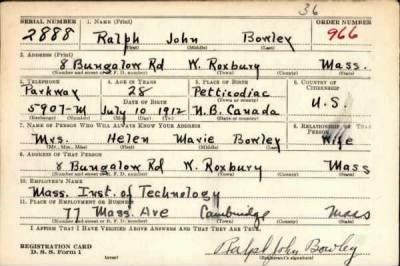 36
SERIAL NUMBER 1. NAME (Print) ORDER NUMBER
2888 Ralph John Bowley 966
(First) (Middle) (Last)
2. ADDRESS (Print)
8 Bungalow Rd W. Roxbury Mass.
(Number and street or R. F. D. number) (Town) (County) (State)
3. TELEPHONE 4. AGE IN YEARS 5. PLACE OF BIRTH 6. COUNTRY OF CITIZENSHIP
Parkway 28 Petticodiac
DATE OF BIRTH (Town or county) U.S.
5907-M July 10 1912 N.B. Canada
(Mo.) (Day) (Yr.) (State or country)
7. NAME OF PERSON WHO WILL ALWAYS KNOW YOUR ADDRESS 8. RELATIONSHIP OF THAT PERSON
Mrs. Helen Marie Bowley Wife
(Mr., Mrs., Miss) (First) (Middle) (Last)
9. ADDRESS OF THAT PERSON
8 Bungalow Rd W. Roxbury Mass
(Number and street or R. F. D. number) (Town) (County) (State)
10. EMPLOYER'S NAME
Mass. Inst. of Technology
11. PLACE OF EMPLOYMENT OR BUSINESS
77 Mass. Ave Cambridge Mass
(Number and street or R. F. D. number) (Town) (County) (State)
I AFFIRM THAT I HAVE VERIFIED ABOVE ANSWERS AND THAT THEY ARE TRUE.
REGISTRATION CARD
D. S. S. Form 1 Ralph John Bowley
(Registrant's signature)